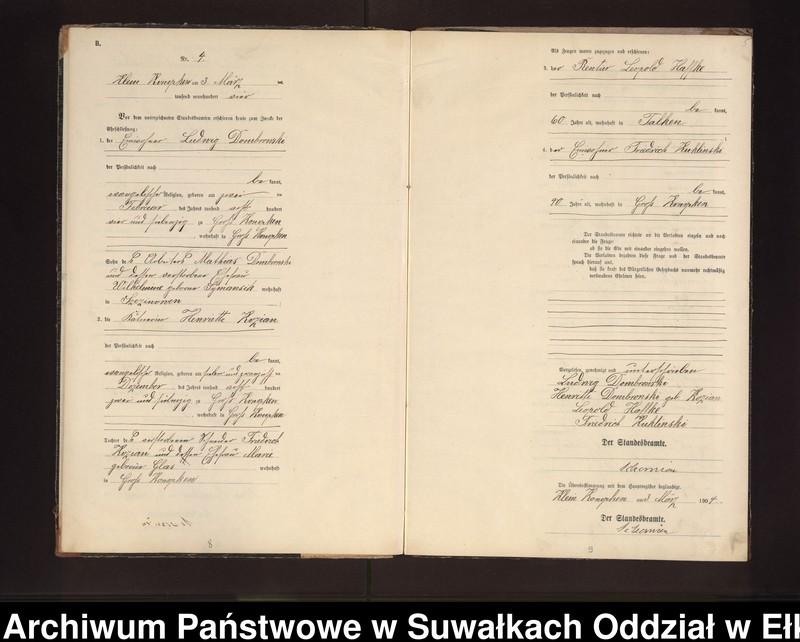 B.
Nr. 4.
Klein Konopken am 3. März
tausend neunhundert vier
Vor dem unterzeichneten Standesbeamten erschienen heute zum Zwecke der
Eheschließung:
1. der Einwohner Ludwig Dombrowski
der Persönlichkeit nach
be kannt,
evangelischer Religion, geboren am zwei
Februar des Jahres tausend acht hundert
vier und siebenzig in Groß Konopken
, wohnhaft in Groß Konopken
Sohn des Arbeiters Mathias Dombrowski
und dessen verstorbene Ehefrau
Wilhelmine geborene Symanzick wohnhaft
in
2. die Henriette Kozian
der Persönlichkeit nach
be kannt,
evangelischer Religion, geboren am sieben und zwanzig
Dezember des Jahres tausend acht hundert
zwei und siebenzig in Groß Konopken
, wohnhaft in Groß Konopken
Tochter des verstorbenen Schneider Friedrich
Kozian und dessen Ehefrau Marie
geborene Glas wohnhaft
in Groß Konopken
8
Als Zeugen waren zugezogen und erschienen:
3. der Rentier Leopold Haffke
der Persönlichkeit nach
be kannt,
60 Jahre alt, wohnhaft in Talken
4. der Einwohner Friedrich Kuklinski
der Persönlichkeit nach
be kannt,
Jahre alt, wohnhaft in Groß Konopken
Der Standesbeamte richtete an die Verlobten einzeln und nach
einander die Frage:
ob sie die Ehe mit einander eingehen wollen.
Die Verlobten bejahten diese Frage und der Standesbeamte
sprach hierauf aus,
daß sie kraft des Bürgerlichen Gesetzbuchs nunmehr rechtmäßig
verbundene Eheleute seien.
Vorgelesen, genehmigt und unterschrieben
Ludwig Dombrowski
Henriette Dombrowski geb. Kozian
Leopold Haffke
Friedrich Kuklinski
Der Standesbeamte.
Die Übereinstimmung mit dem Hauptregister beglaubigt.
Klein Konopken am März 1904.
Der Standesbeamte.
9
Archiwum Państwowe w Suwałkach Oddział w Eł